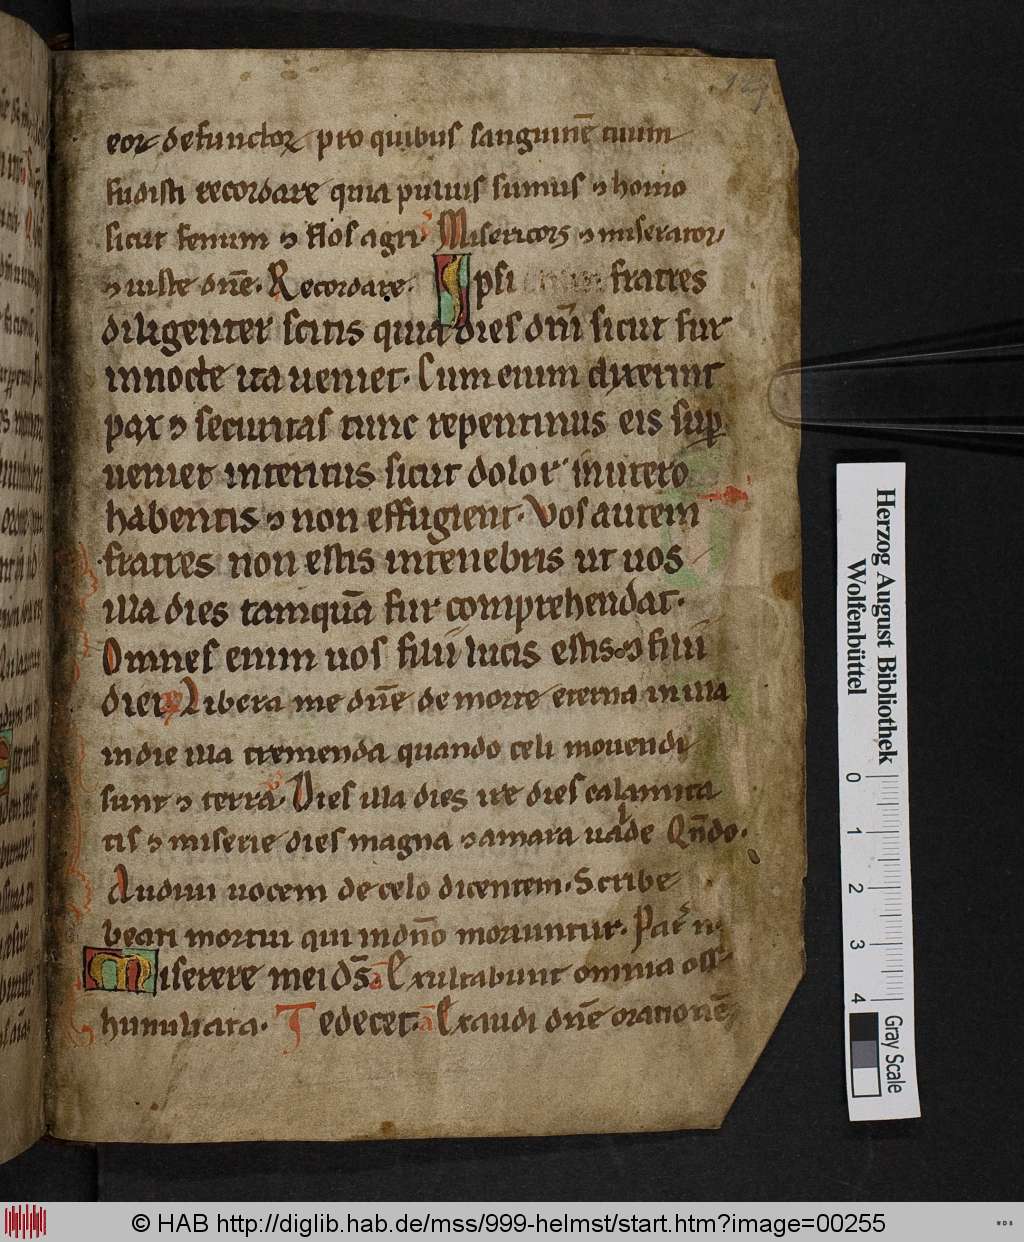 eoꝝ defunctoꝝ pro quibus sanguinē tuum
fudisti recordare quia puluis sumus ⁊ homo
sicut fenum ⁊ flos agri. Misericors ⁊ miserator
⁊ iuste dn̄e. Recordare. Ipsi fratres
diligenter scitis quia dies dn̄i sicut fur
innocte ita ueniet. Cum enim dyxerint
pax ⁊ securitas tunc repentinus eis suꝑ
ueniet interitus sicut dolor inutero
habentis ⁊ non effugient. Vos autem
fratres non estis intenebris ut uos
illa dies tamquā fur comprehendat.
Omnes enim uos filii lucis estis. ⁊ filii
diei. Libera me dn̄e de morte eterna in illa
indie illa tremenda quando celi mouendi
sunt ⁊ terra. Dies illa dies ire dies calamita
tis ⁊ miserie dies magna ⁊ amara ualde Qn̄do.
Audiui uocem de celo dicentem. Scribe
beati mortui qui indn̄o moriuntur. Pat̄ n̄.
Miserere mei ds̄ ā Exultabunt omnia oss
humiliata. Te decet. ā Exaudi dn̄e orationē
Herzog August Bibliothek
Wolfenbüttel
0 1 2 3 4
Gray Scale
© HAB http://diglib.hab.de/mss/999-helmst/start.htm?image=00255